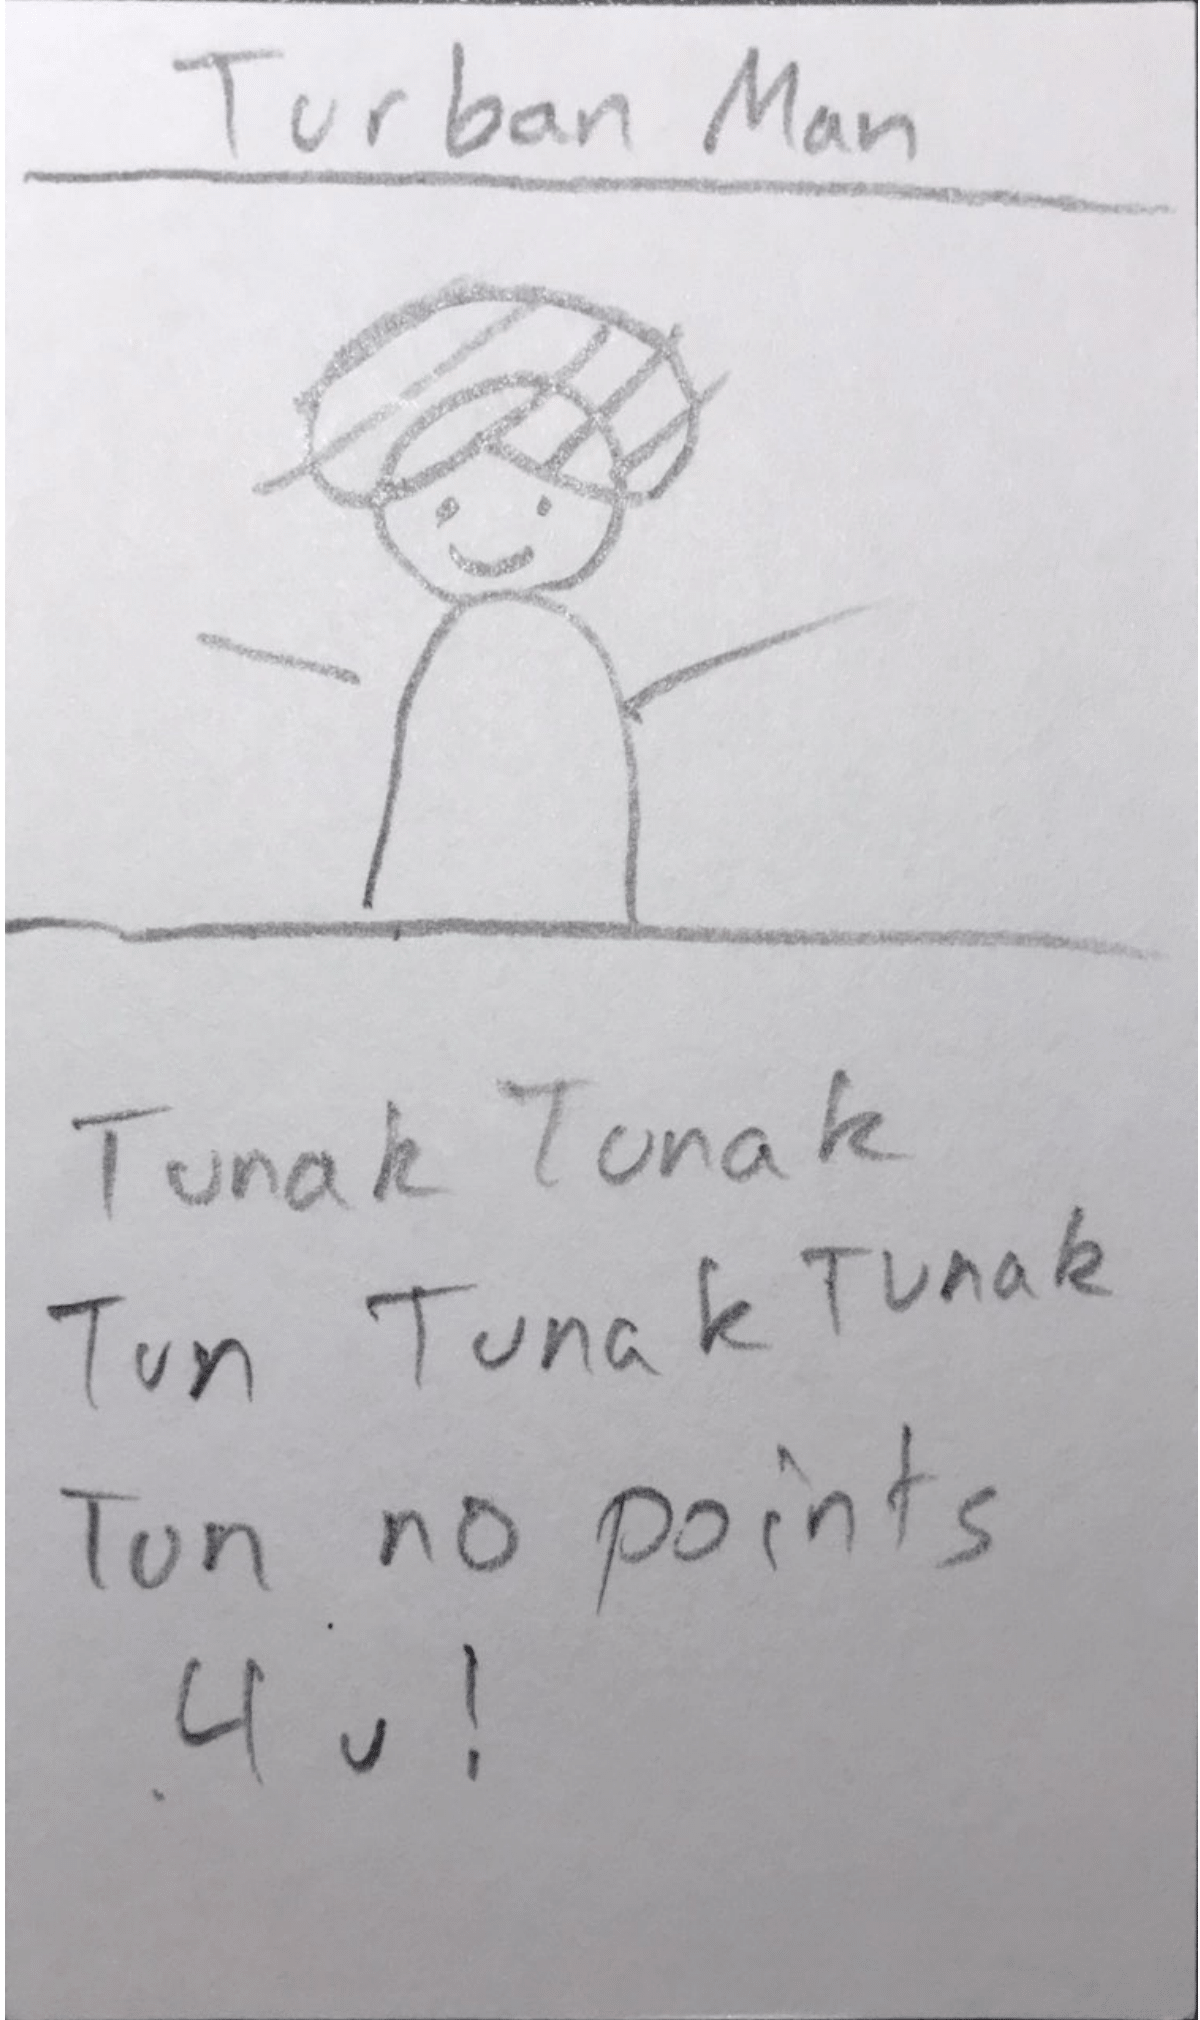 Turban Man
Tunak Tunak
Tun Tunak Tunak
Tun no points
4 u!